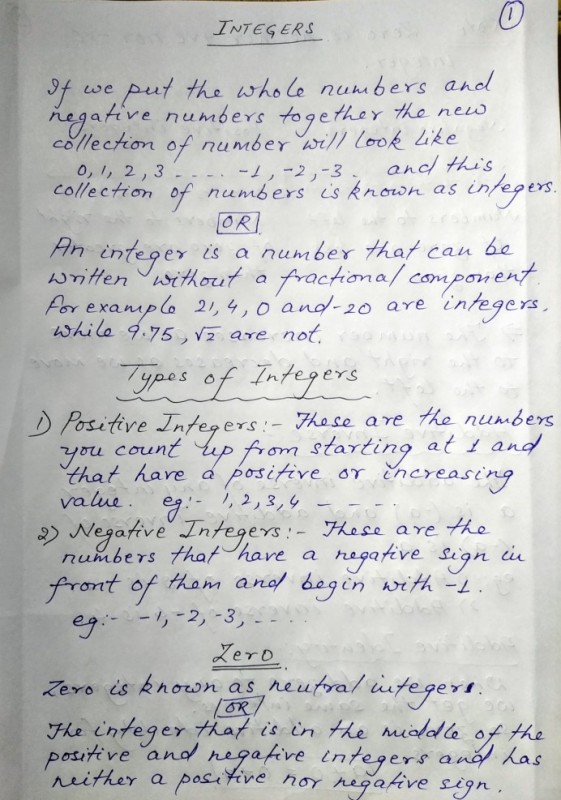 1
INTEGERS
If we put the whole numbers and
negative numbers together the new
collection of number will look like
0, 1, 2, 3 ..... -1, -2, -3. and this
collection of numbers is known as integers.
OR
An integer is a number that can be
written without a fractional component.
For example 21, 4, 0 and -20 are integers,
while 9.75, √2 are not.
Types of Integers
1) Positive Integers:- These are the numbers
you count up from starting at 1 and
that have a positive or increasing
value. eg:- 1, 2, 3, 4 - - - -
2) Negative Integers:- These are the
numbers that have a negative sign in
front of them and begin with -1.
eg:- -1, -2, -3, - - - -
Zero
Zero is known as neutral integers.
OR
The integer that is in the middle of the
positive and negative integers and has
neither a positive nor negative sign.